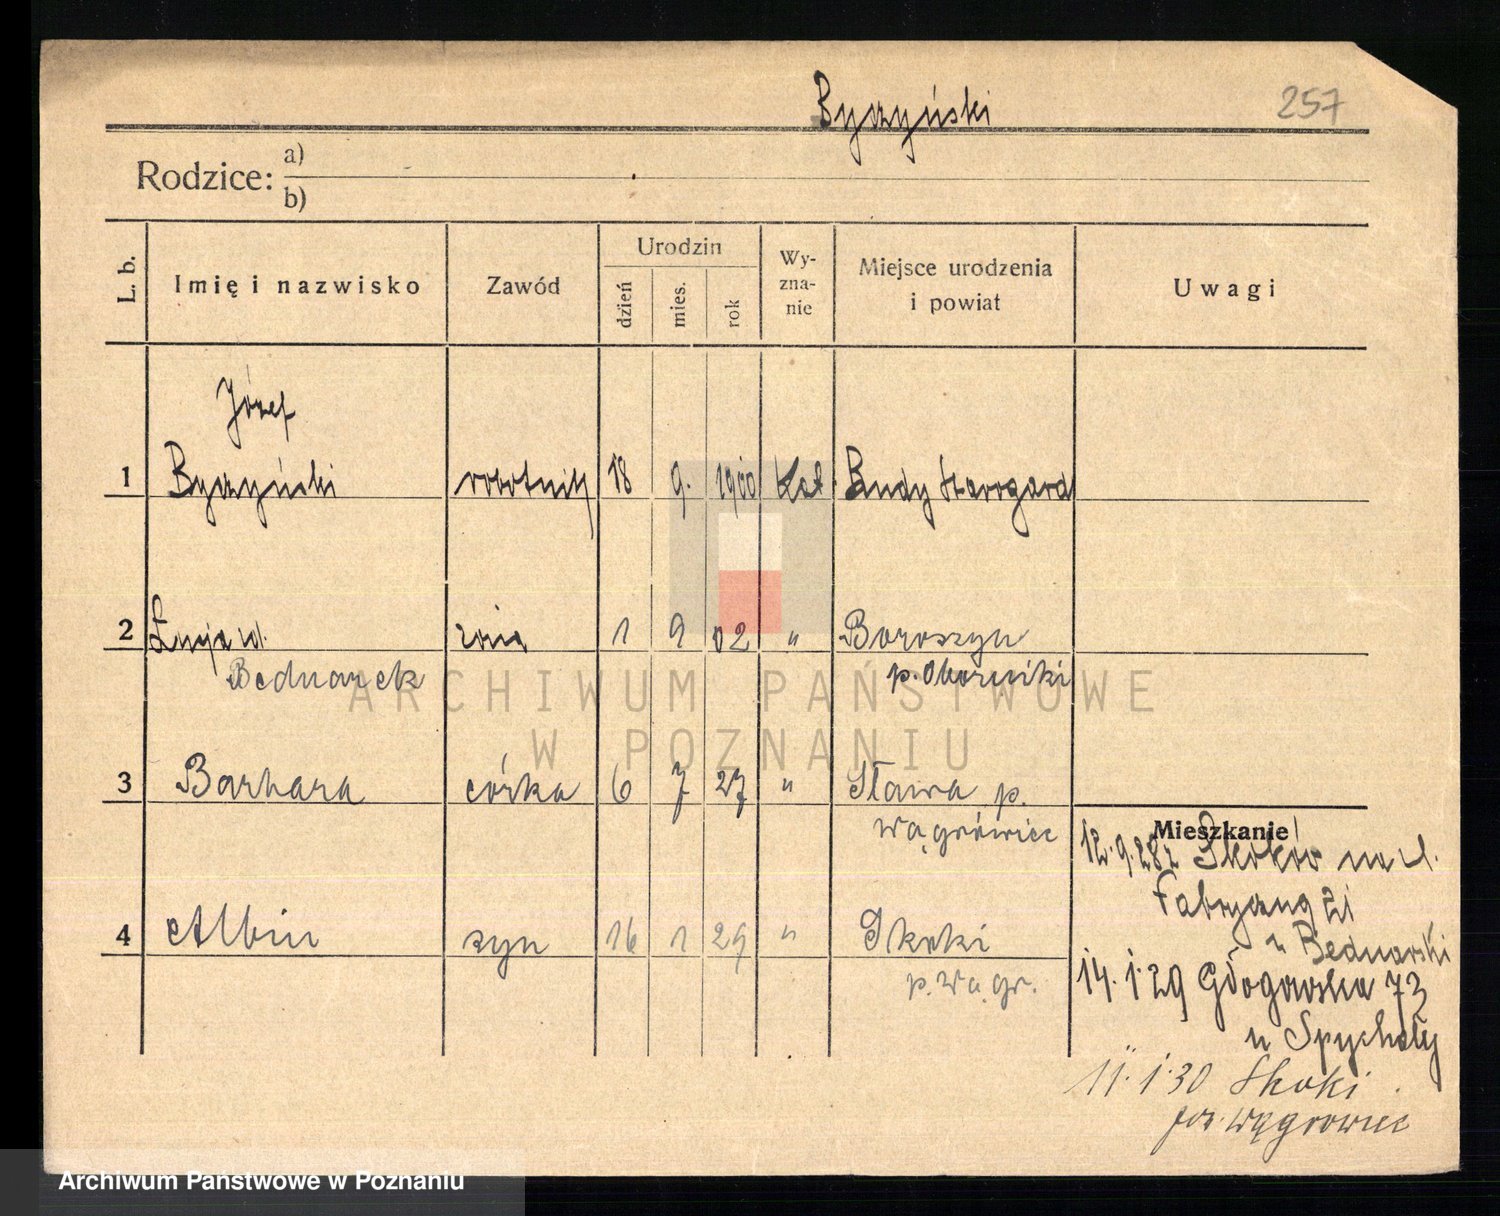 Byczyński
257
Rodzice: a)
b)
L. b.
Imię i nazwisko
Zawód
Urodzin
dzień
mies.
rok
Wy-
zna-
nie
Miejsce urodzenia
i powiat
Uwagi
Józef
1 Byczyński robotnik 18 9. 1900 Kat. Budy Starogard
2 Łucja zd. żona 1 9 02 " Boroszyn
Bednarek p. Oborniki
3 Barbara córka 6 7 27 " Sława p.
Wągrówiec
Mieszkanie
12.9.28 z Skoków na ul.
21
u Bednarski
4 Albin syn 16 1 29 " Skoki
p. Wągr.
14.1.29 Głogowska 73
u Spychały
11.1.30 Skoki
pow. Wągrowiec
ARCHIWUM PAŃSTWOWE
W POZNANIU
Archiwum Państwowe w Poznaniu